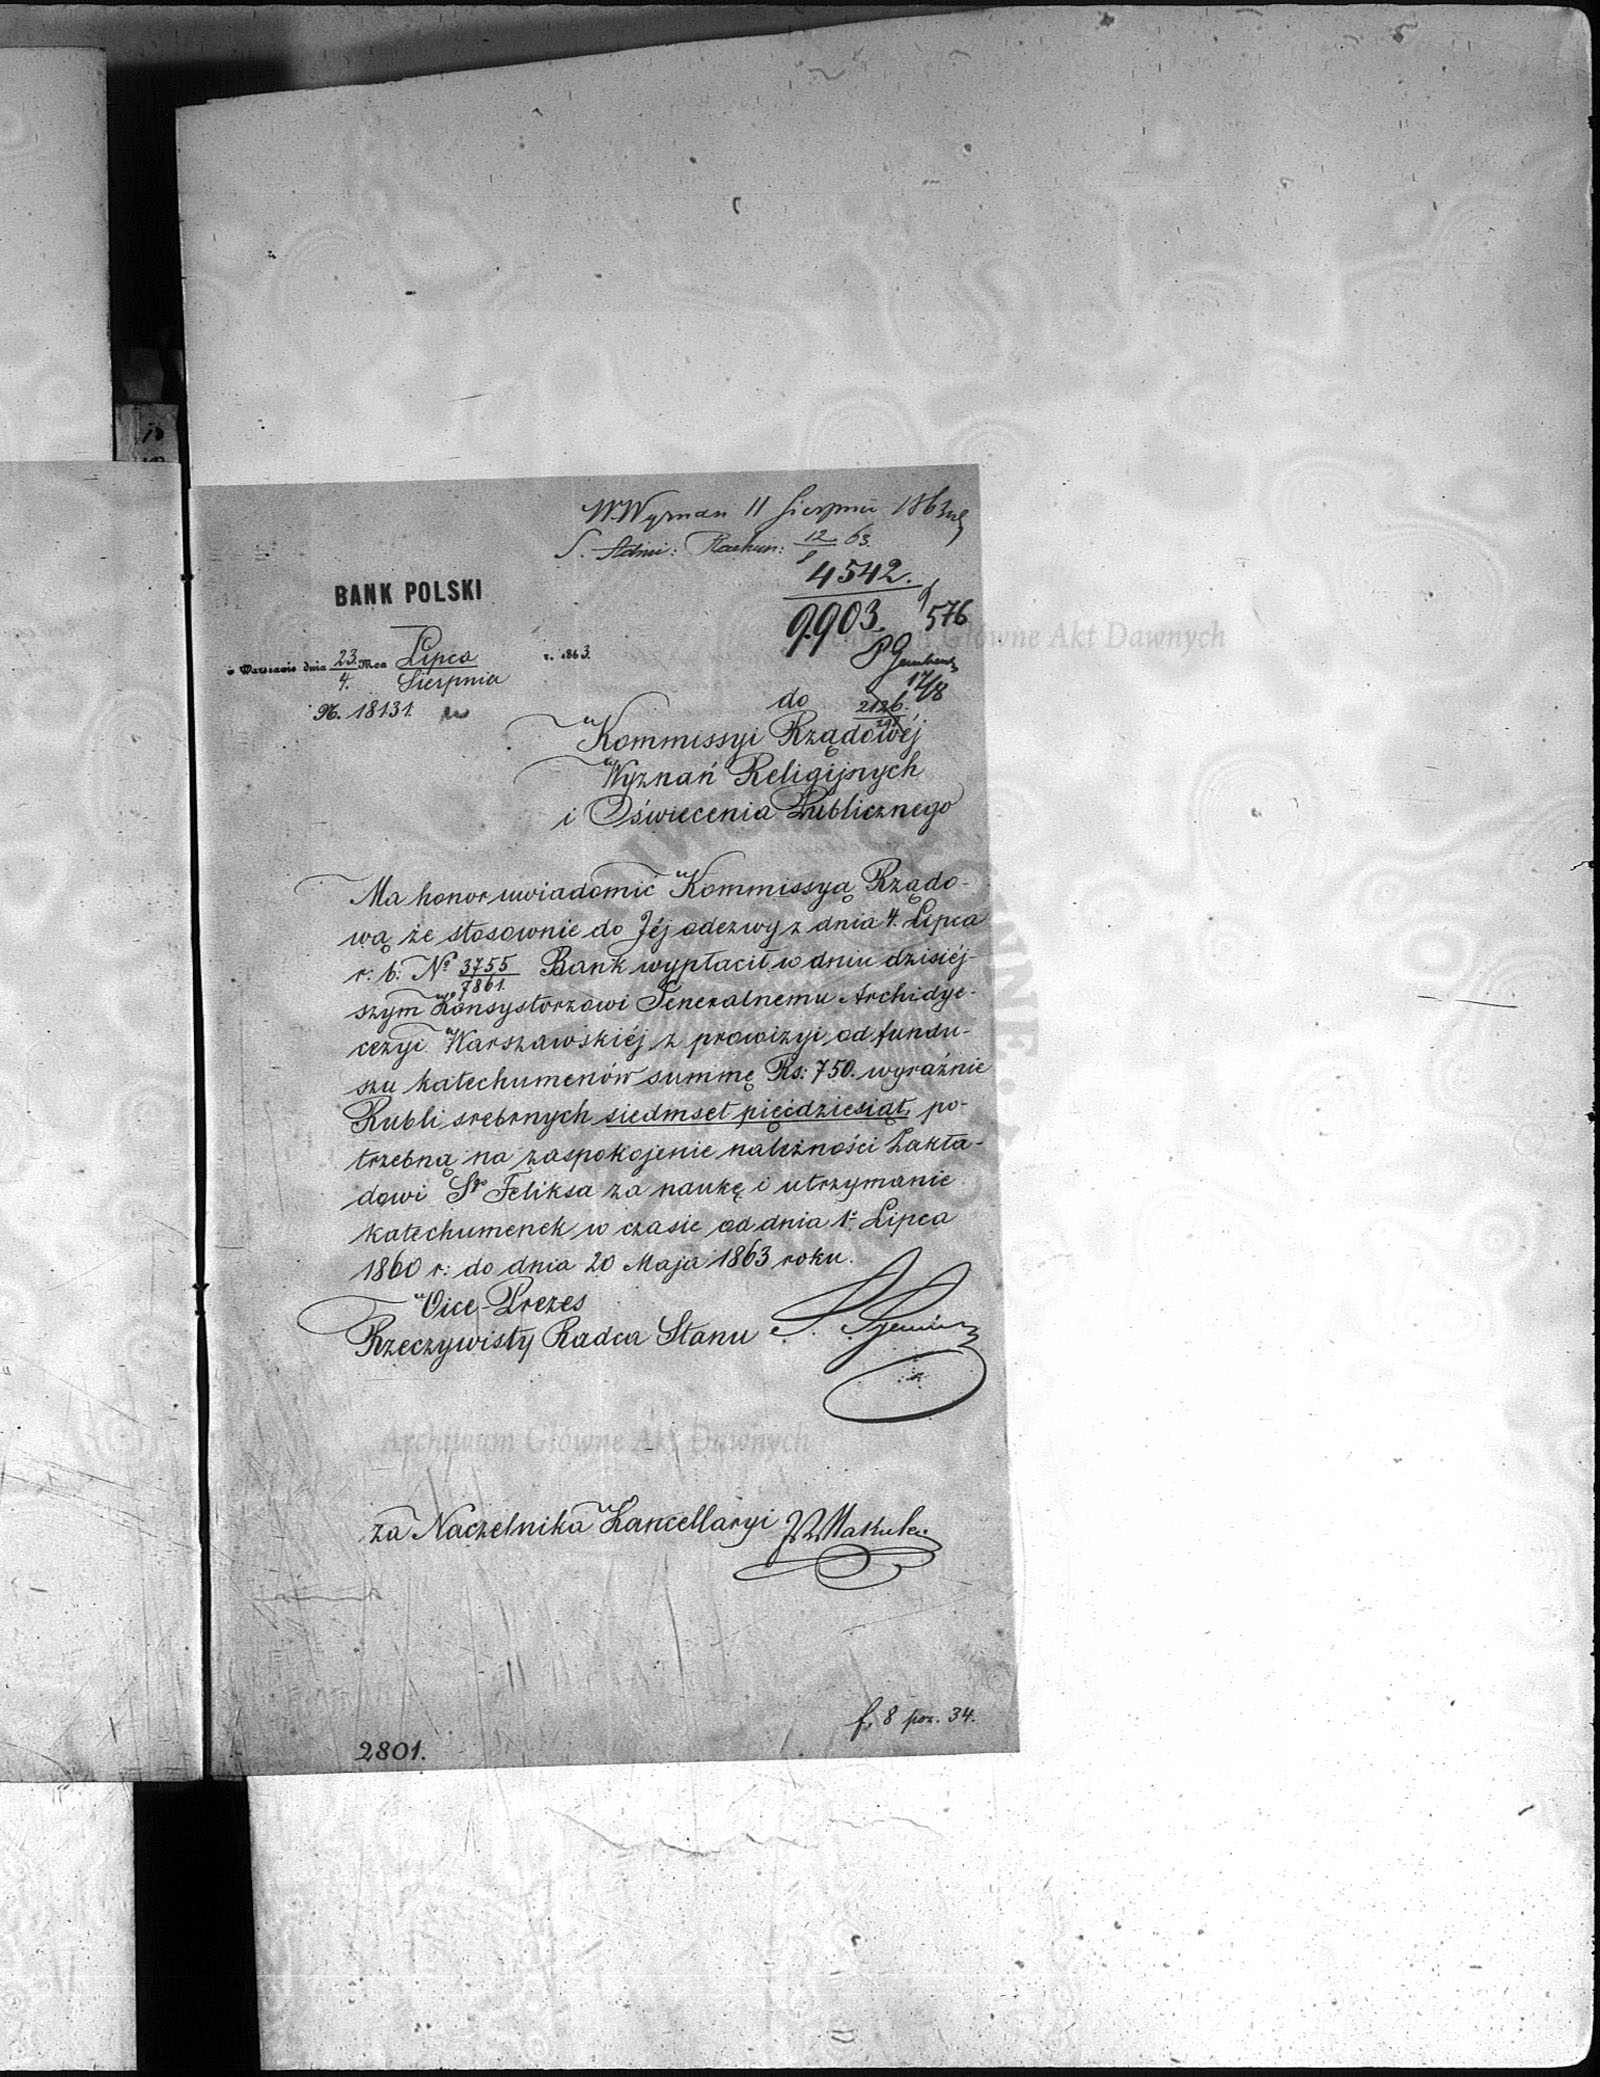 W Wyznań 11 Sierpnia 1863
S. Admi: Rachun: 12/8 63.
4542.
9903. 576
17/8
BANK POLSKI
w Warszawie dnia 23/4. Mca Lipca/Sierpnia r. 1863.
N. 18131.
do 2126.
Kommissyi Rządowéj
Wyznań Religijnych
i Oświecenia Publicznego
Ma honor uwiadomić Kommissyą Rządo-
wą że stosownie do Jéj odezwy z dnia 4. Lipca
r: b: No 3755/7861. Bank wypłacił w dniu dzisiéj-
szym Konsystorzowi Generalnemu Archidye-
cezyi Warszawskiéj z prowizyi od fundu-
szu katechumenów summę Rs: 750. wyraźnie
Rubli srebrnych siedmset pięćdziesiąt, po-
trzebną na zaspokojenie należności Zakła-
dowi Sgo Feliksa za naukę i utrzymanie
katechumenek w czasie od dnia 1o Lipca
1860 r: do dnia 20 Maja 1863 roku.
Vice-Prezes
Rzeczywisty Radca Stanu
Archiwum Główne Akt Dawnych
za Naczelnika Kancellaryi
f. 8 poz. 34.
2801.